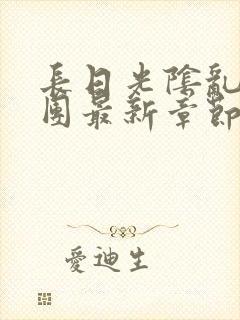 長日光陰亂
團最新章節
愛迪生